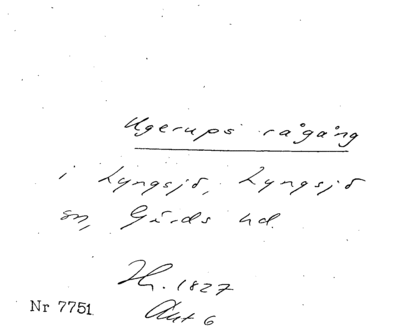 Ugerups rågång
i Lyngsjö, Lyngsjö
sn, Gärds hd.
Hr. 1827
Akt 6
Nr 7751